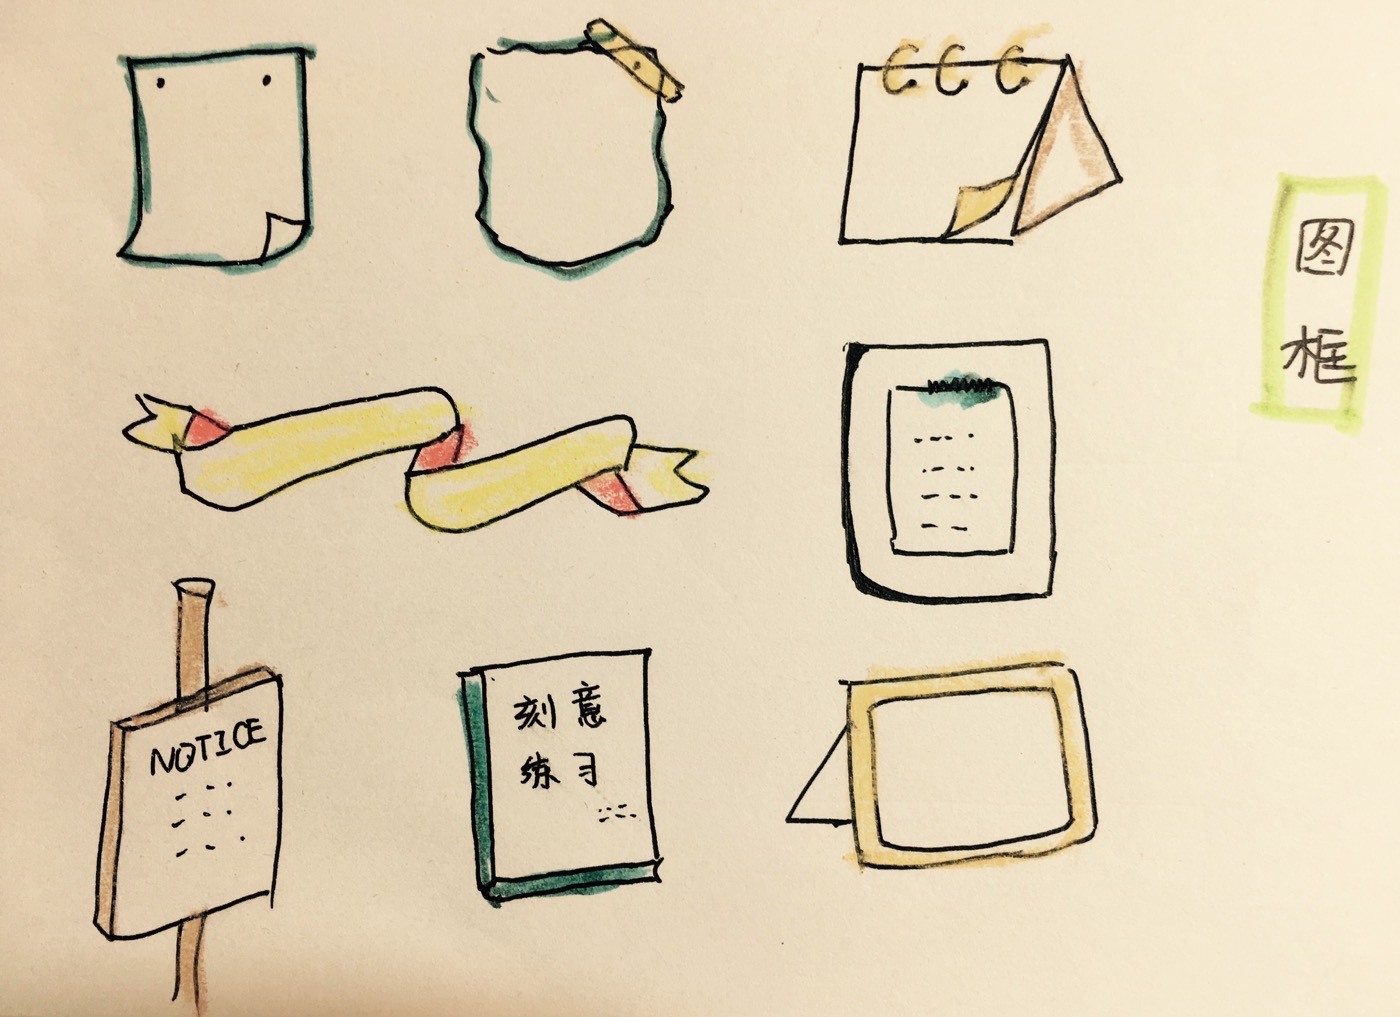 图
框
NOTICE
刻意
练习